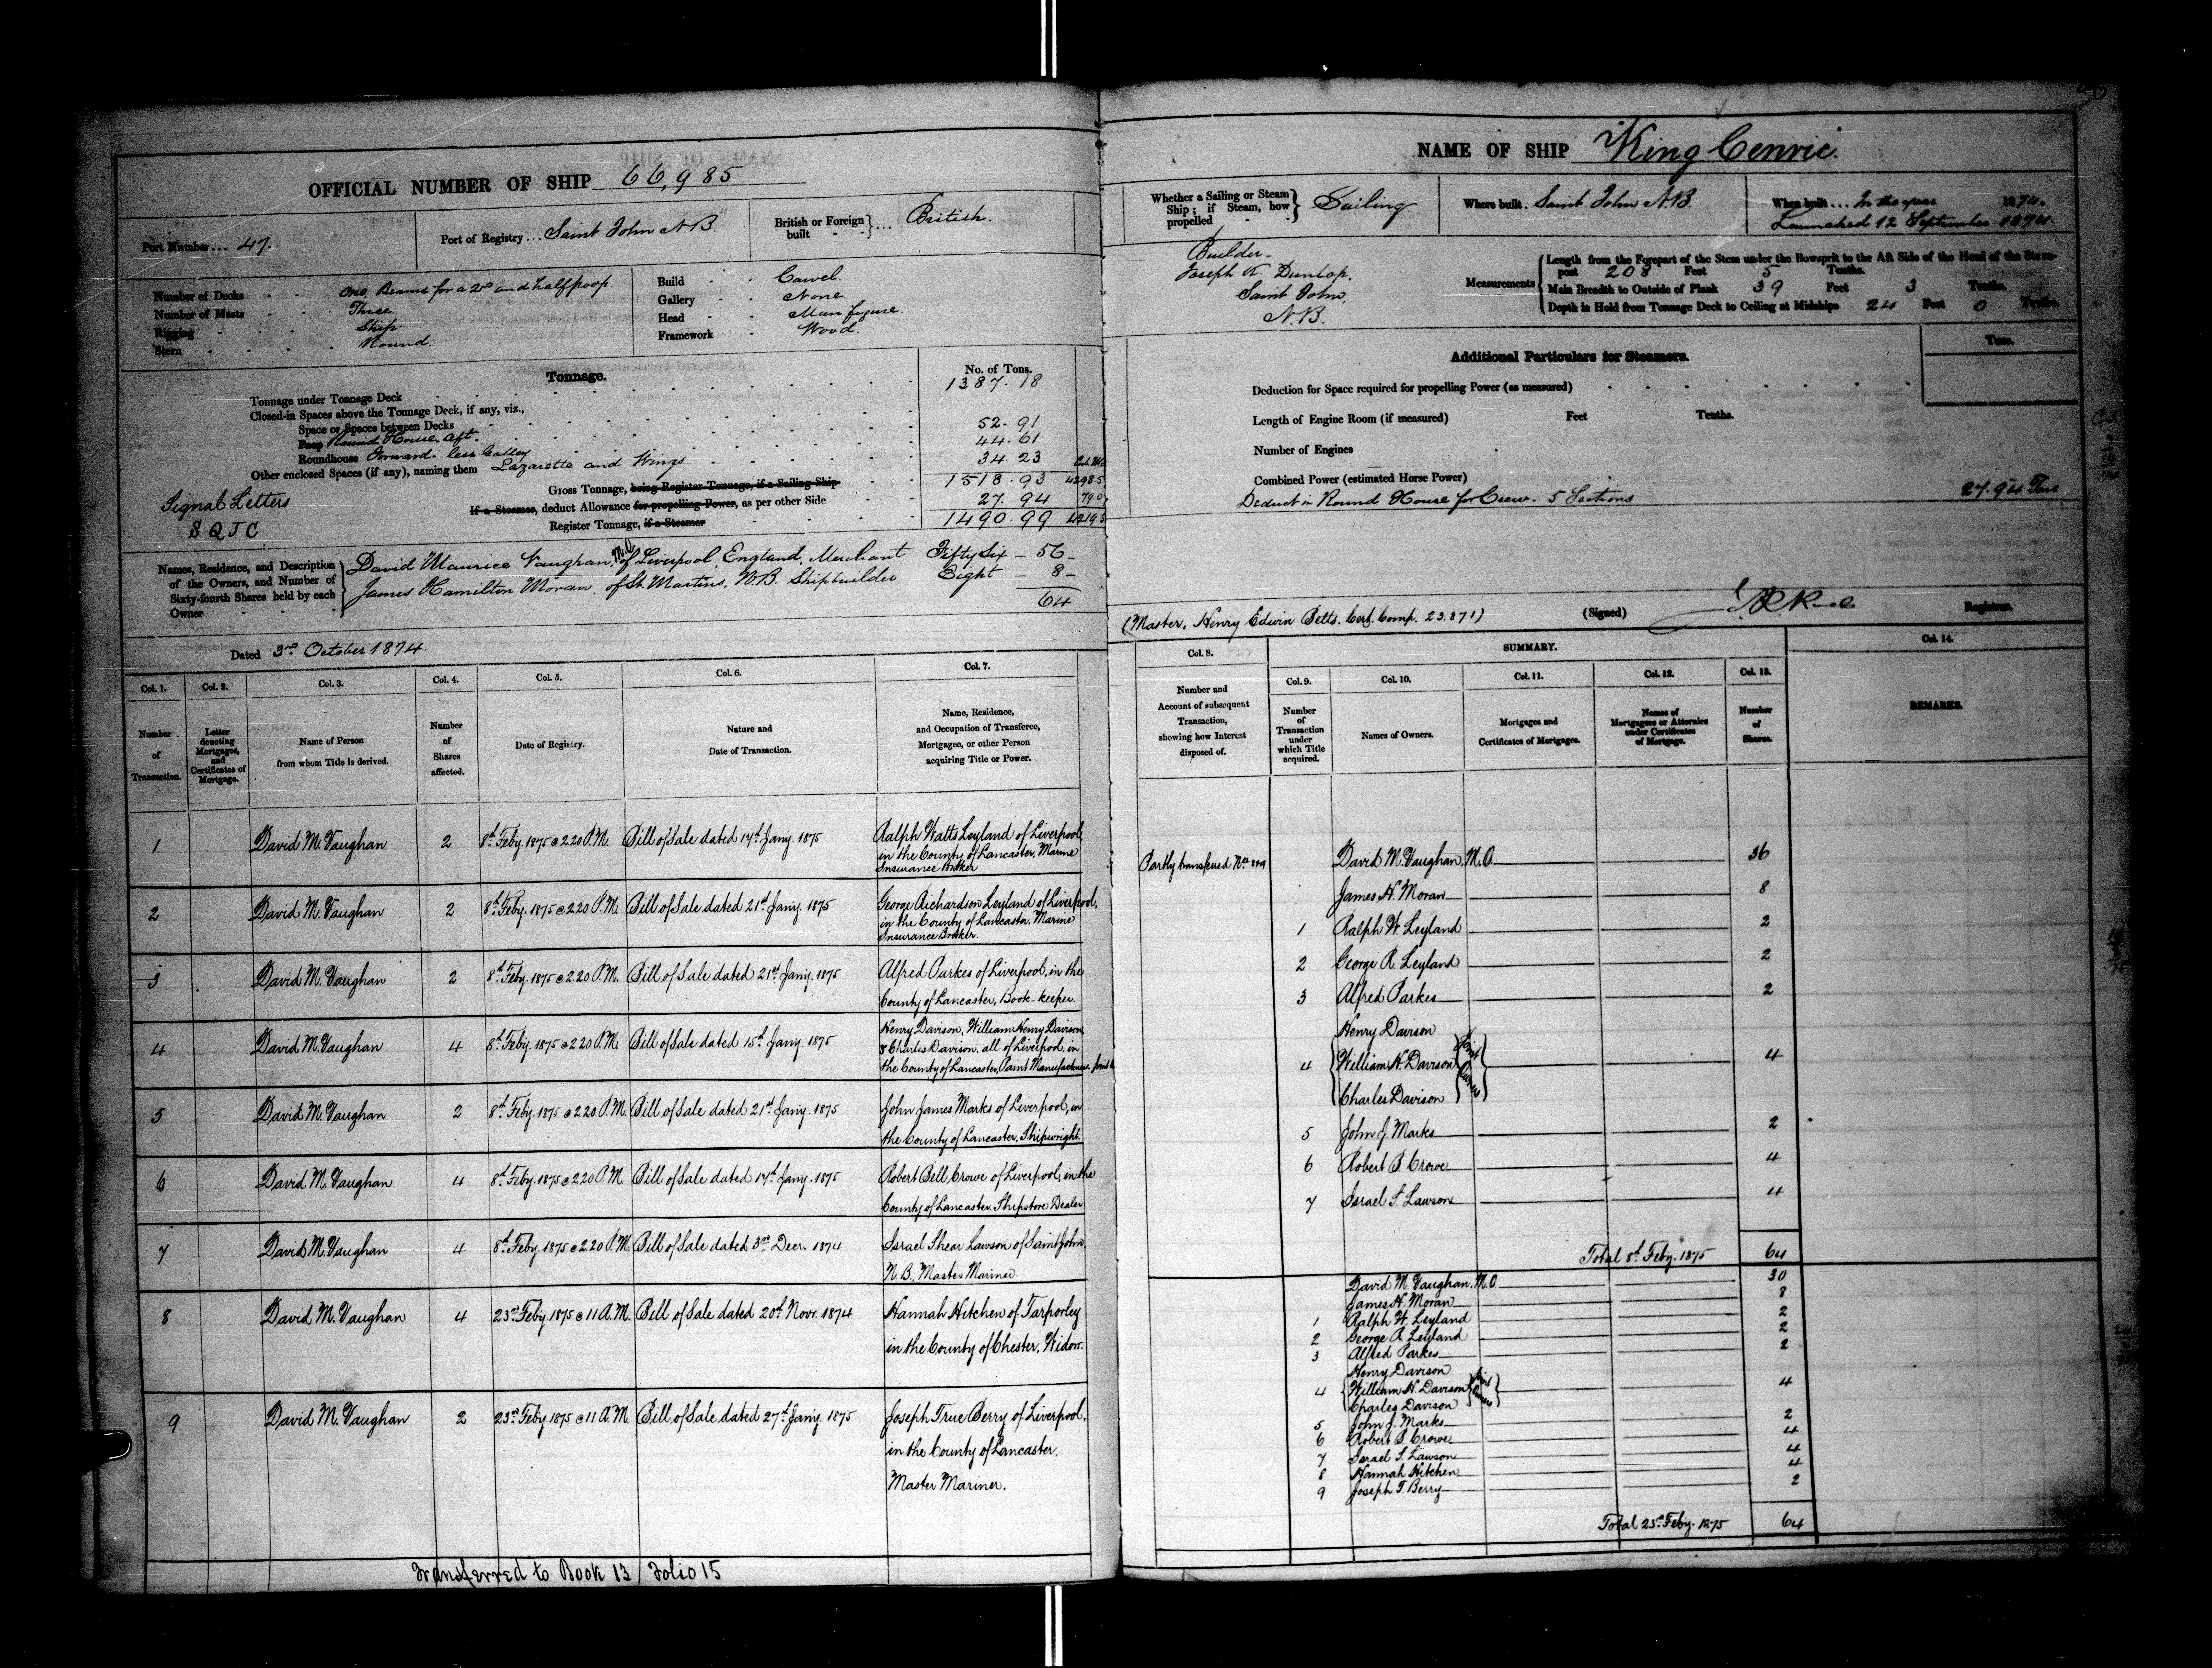 OFFICIAL NUMBER OF SHIP 66,985
Port Number ... 47.
Port of Registry ... Saint John N.B.
British or Foreign built ... British.
Number of Decks One Beams for a 2nd and half poop
Number of Masts Three
Rigging Ship
Stern Round.
Build Carvel
Gallery None
Head Man figure.
Framework Wood.
Tonnage.
No. of Tons.
Tonnage under Tonnage Deck 1387.18
Closed-in Spaces above the Tonnage Deck, if any, viz.,
Space or Spaces between Decks
Poop Round House Aft. 52.91
Roundhouse Forward less Galley 44.61
Other enclosed Spaces (if any), naming them Lazarette and Wings 34.23
Gross Tonnage, being Register Tonnage, if a Sailing Ship 1518.93 4298.5
If a Steamer, deduct Allowance for propelling Power, as per other Side 27.94 79.0
Register Tonnage, if a Steamer 1490.99 4219.5
Signal Letters
SQJC
Names, Residence, and Description
of the Owners, and Number of
Sixty-fourth Shares held by each
Owner
David Maurice Vaughan, M.O. of Liverpool, England, Merchant Fifty Six - 56 -
James Hamilton Moran, of St. Martins, N.B. Shipbuilder Eight - 8 -
64
Dated 3rd October 1874.
Col. 1. Col. 2. Col. 3. Col. 4. Col. 5. Col. 6. Col. 7.
Number of Transaction.
Letter denoting Mortgages, and Certificates of Mortgage.
Name of Person from whom Title is derived.
Number of Shares affected.
Date of Registry.
Nature and Date of Transaction.
Name, Residence, and Occupation of Transferee, Mortgagee, or other Person acquiring Title or Power.
1 David M. Vaughan 2 8th Feby. 1875 @ 2.20 P.M. Bill of Sale dated 14th Jany. 1875 Ralph Watts Leyland of Liverpool,
in the County of Lancaster, Marine
Insurance Broker
2 David M. Vaughan 2 8th Feby. 1875 @ 2.20 P.M. Bill of Sale dated 21st Jany. 1875 George Richardson Leyland of Liverpool,
in the County of Lancaster, Marine
Insurance Broker.
3 David M. Vaughan 2 8th Feby. 1875 @ 2.20 P.M. Bill of Sale dated 21st Jany. 1875 Alfred Parkes of Liverpool, in the
County of Lancaster, Book-keeper.
4 David M. Vaughan 4 8th Feby. 1875 @ 2.20 P.M. Bill of Sale dated 15th Jany. 1875 Henry Davison, William Henry Davison,
& Charles Davison, all of Liverpool, in
the County of Lancaster, Paint Manufacturers,
5 David M. Vaughan 2 8th Feby. 1875 @ 2.20 P.M. Bill of Sale dated 21st Jany. 1875 John James Marks of Liverpool, in
the County of Lancaster, Shipwright.
6 David M. Vaughan 4 8th Feby. 1875 @ 2.20 P.M. Bill of Sale dated 14th Jany. 1875 Robert Bell Crowe of Liverpool, in the
County of Lancaster, Shipstore Dealer
7 David M. Vaughan 4 8th Feby. 1875 @ 2.20 P.M. Bill of Sale dated 3rd Decr. 1874 Israel Shear Lawson of Saint John,
N.B., Master Mariner.
8 David M. Vaughan 4 23rd Feby. 1875 @ 11 A.M. Bill of Sale dated 20th Novr. 1874 Hannah Hitchen of Tarporley
in the County of Chester, Widow.
9 David M. Vaughan 2 23rd Feby. 1875 @ 11 A.M. Bill of Sale dated 27th Jany. 1875 Joseph True Berry of Liverpool,
in the County of Lancaster.
Master Mariner.
Transferred to Book 13 / Folio 15
NAME OF SHIP King Cenric.
Whether a Sailing or Steam Ship; if Steam, how propelled Sailing
Where built. Saint John N.B.
When built ... In the year 1874.
Launched 12 September 1874.
Builder-
Joseph K. Dunlop,
Saint John,
N.B.
Measurements
Length from the Forepart of the Stem under the Bowsprit to the Aft Side of the Head of the Stern-
post 208 Feet 5 Tenths.
Main Breadth to Outside of Plank 39 Feet 3 Tenths.
Depth in Hold from Tonnage Deck to Ceiling at Midships 24 Feet 0 Tenths.
Additional Particulars for Steamers.
Tons.
Deduction for Space required for propelling Power (as measured)
Length of Engine Room (if measured) Feet Tenths.
Number of Engines
Combined Power (estimated Horse Power)
Deduct in Round House for Crew. 5 Sections 27.94 Tons
(Master, Henry Edwin Betts. Cert. Comp. 23.871)
(Signed) Registrar.
Col. 8. SUMMARY. Col. 14.
Col. 9. Col. 10. Col. 11. Col. 12. Col. 13.
Number and Account of subsequent Transaction, showing how Interest disposed of.
Number of Transaction under which Title acquired.
Names of Owners.
Mortgages and Certificates of Mortgages.
Names of Mortgagees or Attornies under Certificates of Mortgage.
Number of Shares.
REMARKS.
Partly transferred Nos. 8 & 9 David M. Vaughan, M.O. 36
James H. Moran 8
1 Ralph W. Leyland 2
2 George R. Leyland 2
3 Alfred Parkes 2
Henry Davison
4 William H. Davison Joint Owners 4
Charles Davison
5 John J. Marks 2
6 Robert B. Crowe 4
7 Israel S. Lawson 4
Total 8th Feby. 1875 64
David M. Vaughan, M.O. 30
James H. Moran 8
1 Ralph W. Leyland 2
2 George R. Leyland 2
3 Alfred Parkes 2
Henry Davison
4 William H. Davison Joint Owners 4
Charles Davison
5 John J. Marks 2
6 Robert B. Crowe 4
7 Israel S. Lawson 4
8 Hannah Hitchen 4
9 Joseph T. Berry 2
Total 23rd Feby. 1875 64